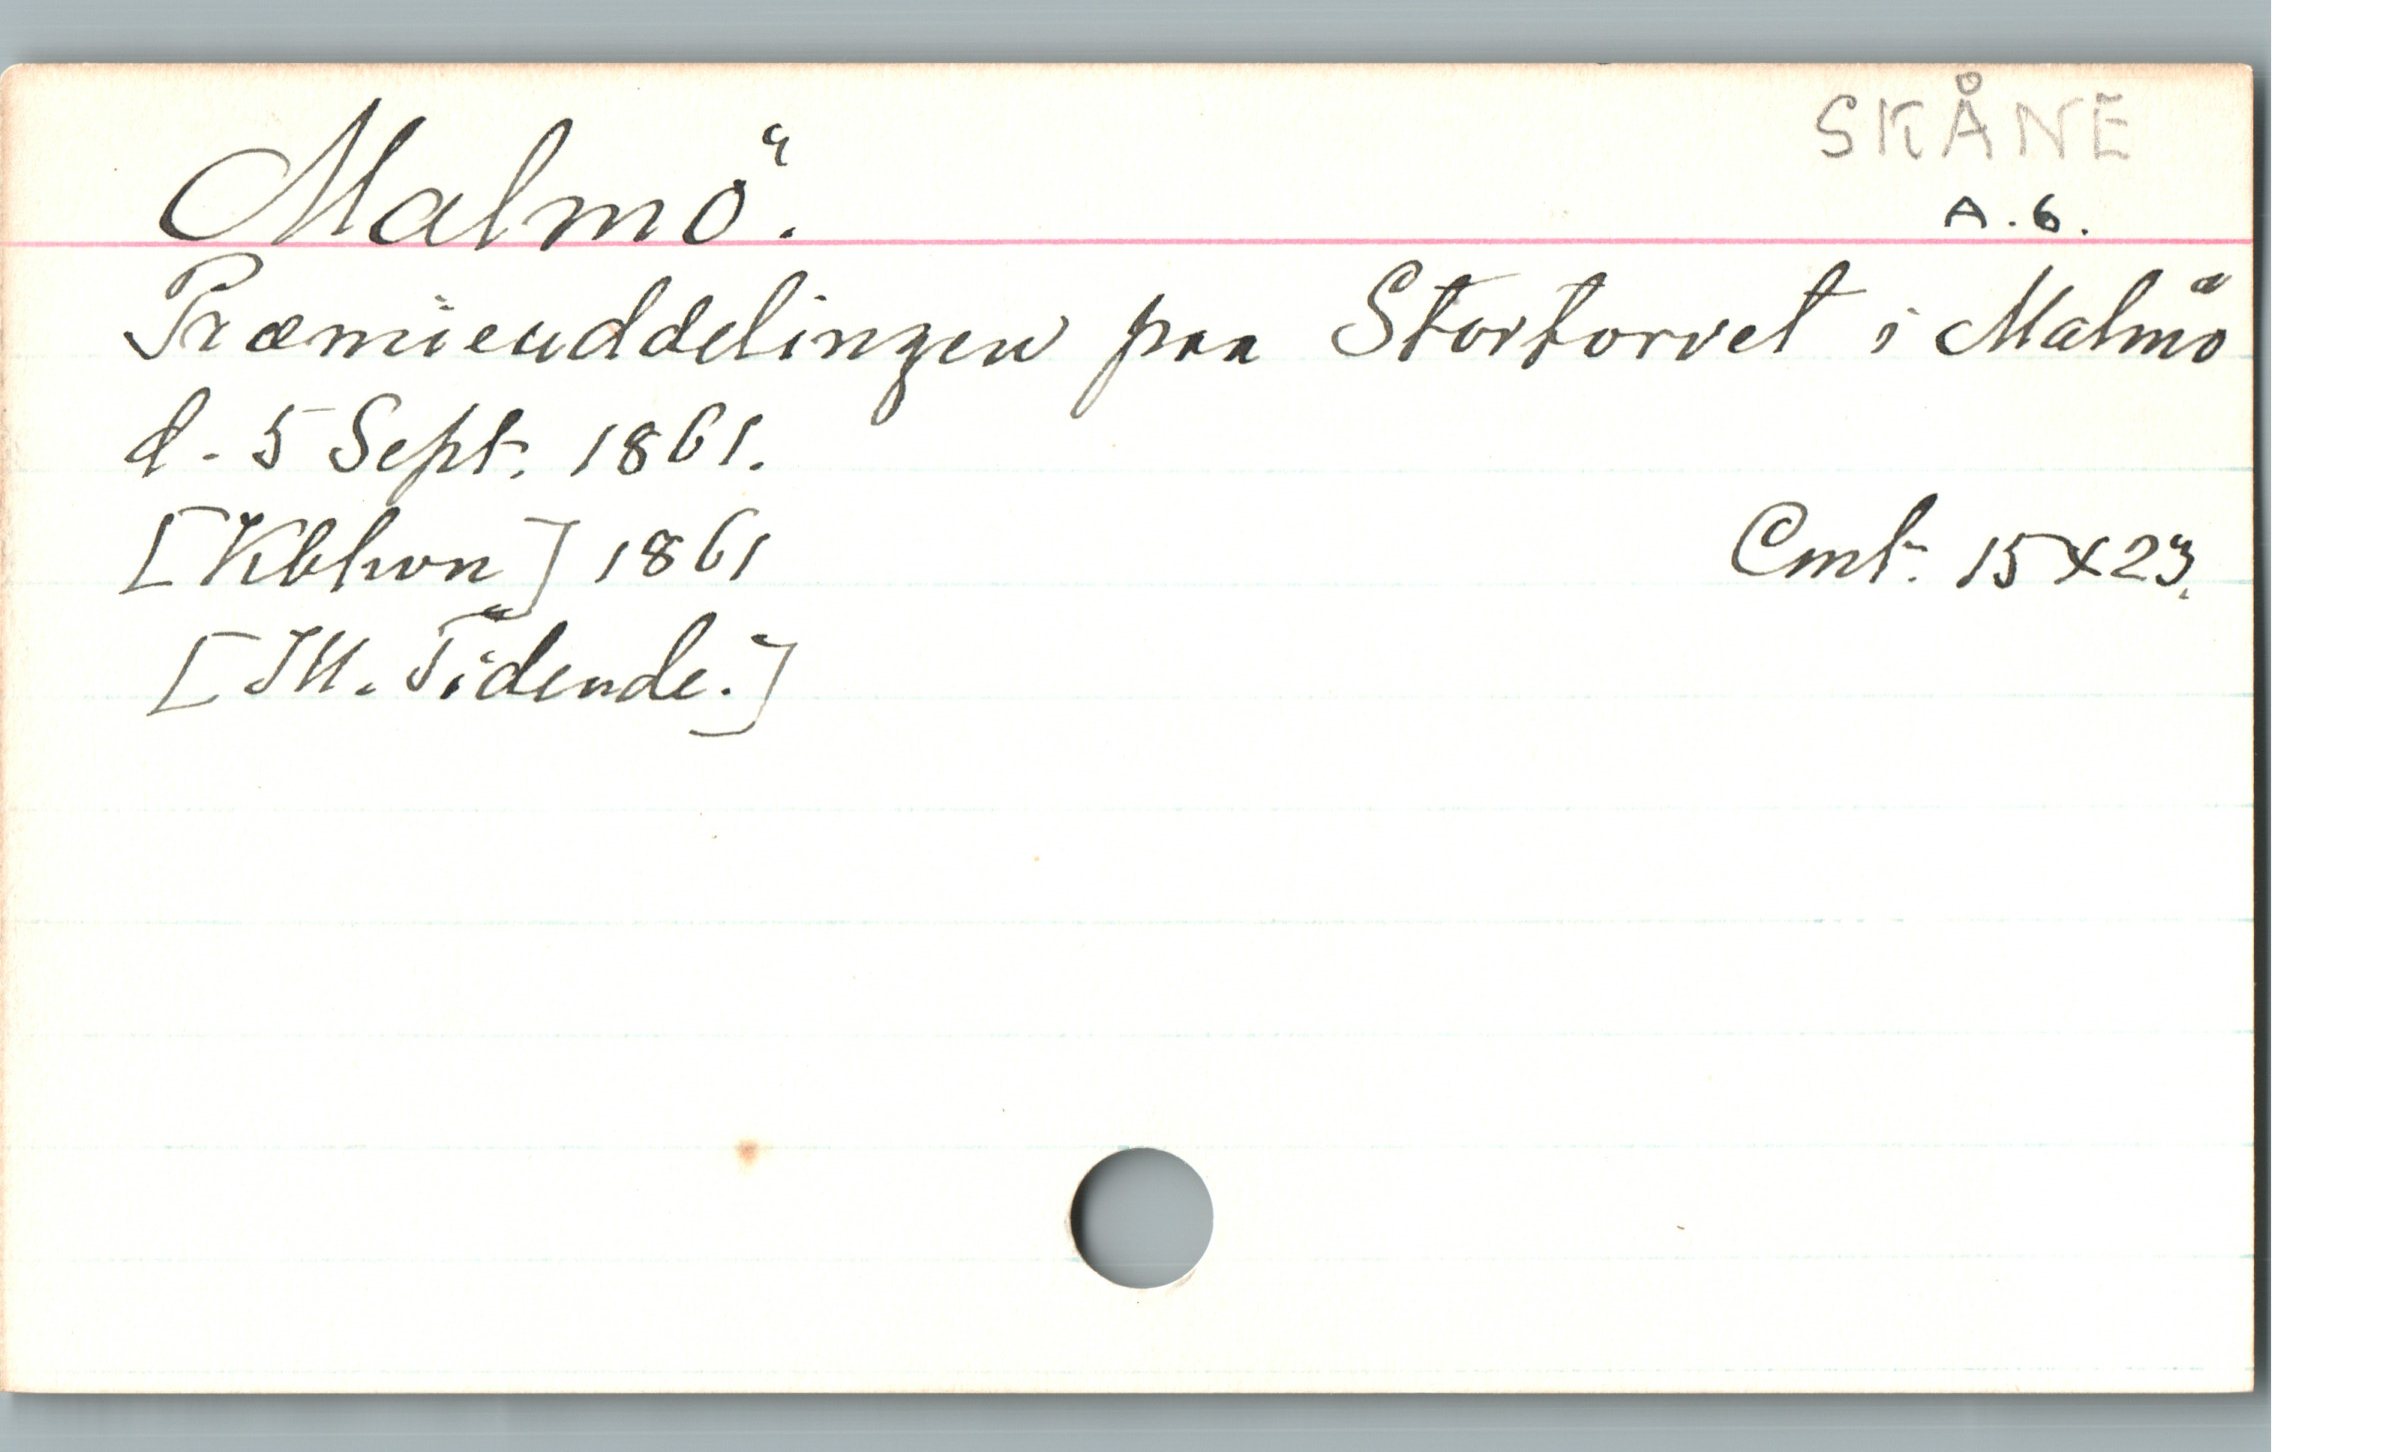 SKÅNE
Malmö.
A.6.
Præmieuddelingen paa Stortorvet i Malmö
d. 5 Sept. 1861.
[Kbhvn] 1861 Cmt. 15x23.
[Ill. Tidende.]